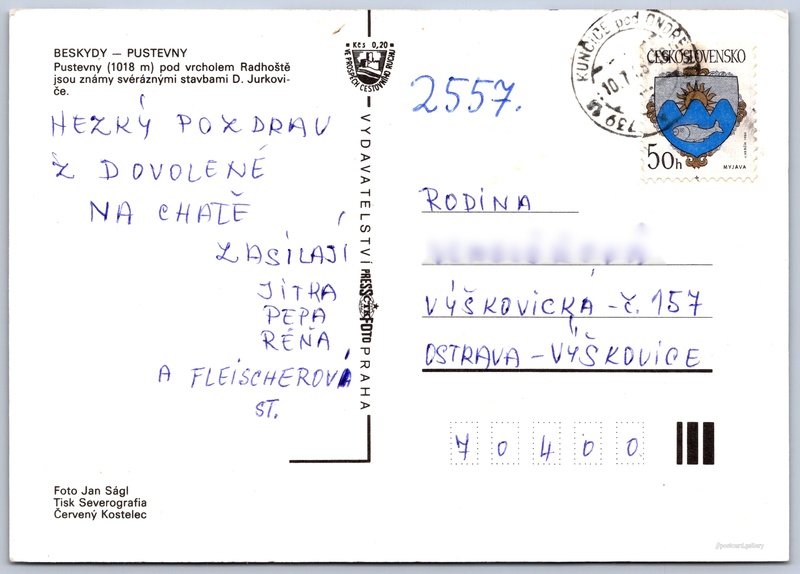 BESKYDY — PUSTEVNY
Pustevny (1018 m) pod vrcholem Radhoště
jsou známy svéráznými stavbami D. Jurkovi-
če.
HEZKÝ POZDRAV
Z DOVOLENÉ
NA CHATĚ
ZASÍLAJÍ
JITKA
PEPA
RÉŇA
A FLEISCHEROVÁ
ST.
Foto Jan Ságl
Tisk Severografia
Červený Kostelec
Kčs 0,20
VE PROSPĚCH CESTOVNÍHO RUCHU
VYDAVATELSTVÍ PRESSFOTO PRAHA
ČTK
2557.
KUNČICE pod ONDŘE
10.7.
739
ČESKOSLOVENSKO
50h
MYJAVA
RODINA
VÝŠKOVICKÁ - č. 157
OSTRAVA - VÝŠKOVICE
70400
//postcard.gallery